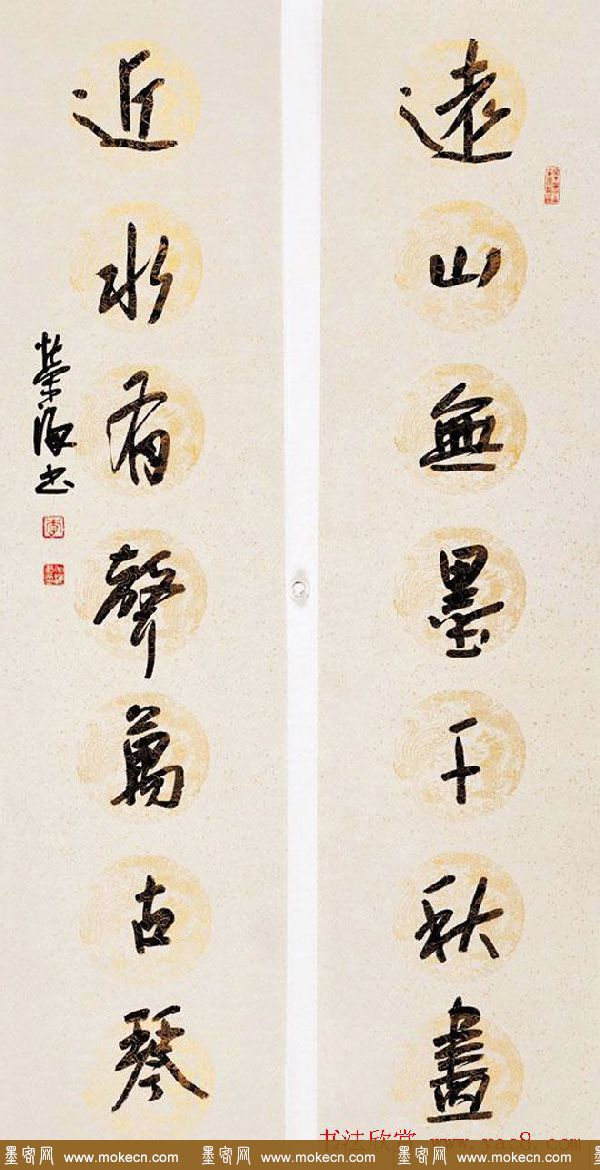 遠山無墨千秋畫
近水有聲萬古琴
榮海书
书法欣赏 www.yac8.com
墨客网 www.mokecn.com 墨客网 www.mokecn.com 墨客网 www.mokecn.com 墨客网